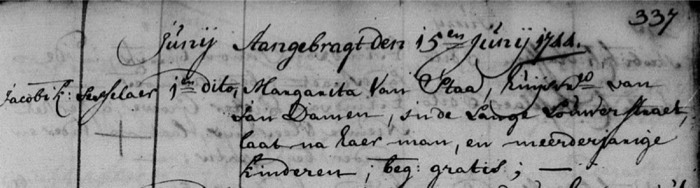 337
Junij Aangebragt den 15en Junij 1744.
Jacobik: Sesselaer 1en dito, Margarita Van Staa, Huijsvro van
Jan Damen, in de Lange Louwerstraet,
laat na haer man, en meerderjarige
kinderen; beg: gratis; —